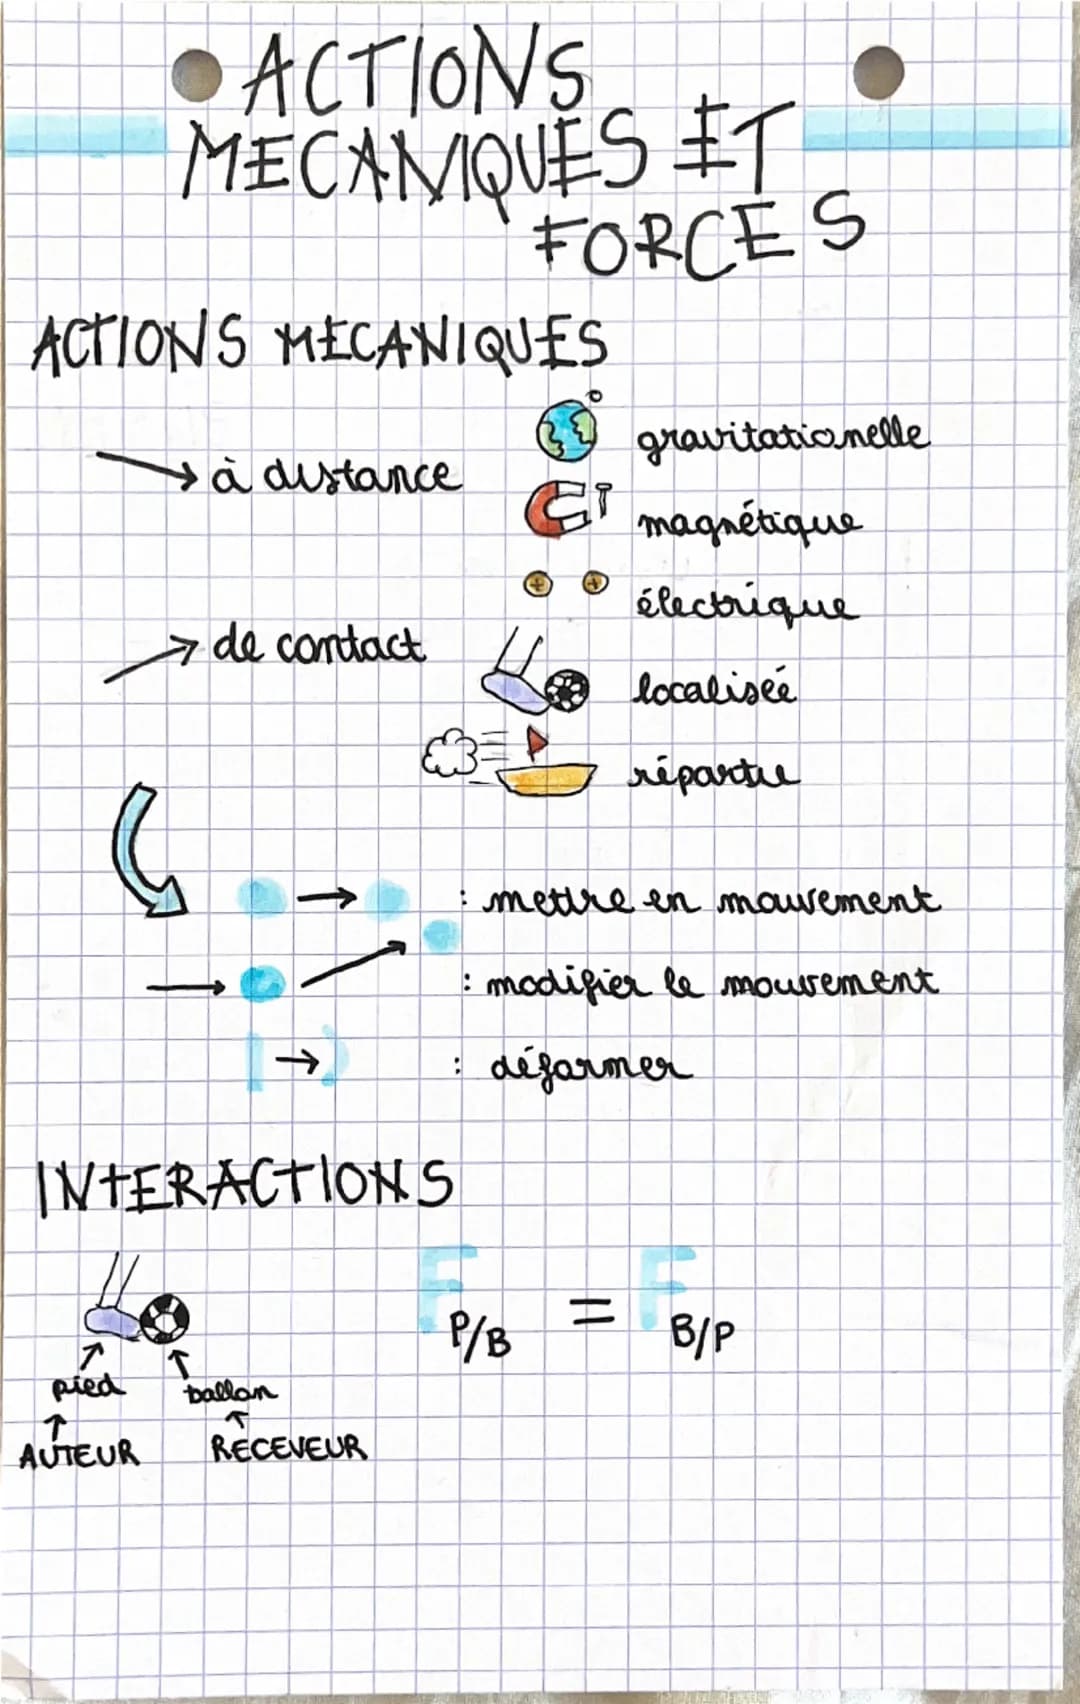 ACTIONS
MECANIQUES ET
FORCES
ACTIONS MECANIQUES
→ à distance
gravitationelle
magnétique
+ +
électrique
→ de contact
localisée
répartie
→ : mettre en mouvement
→ → : modifier le mouvement
| → ) : déformer
INTERACTIONS
F P/B = F B/P
↑ ↑
pied ballon
↑ ↑
AUTEUR RECEVEUR